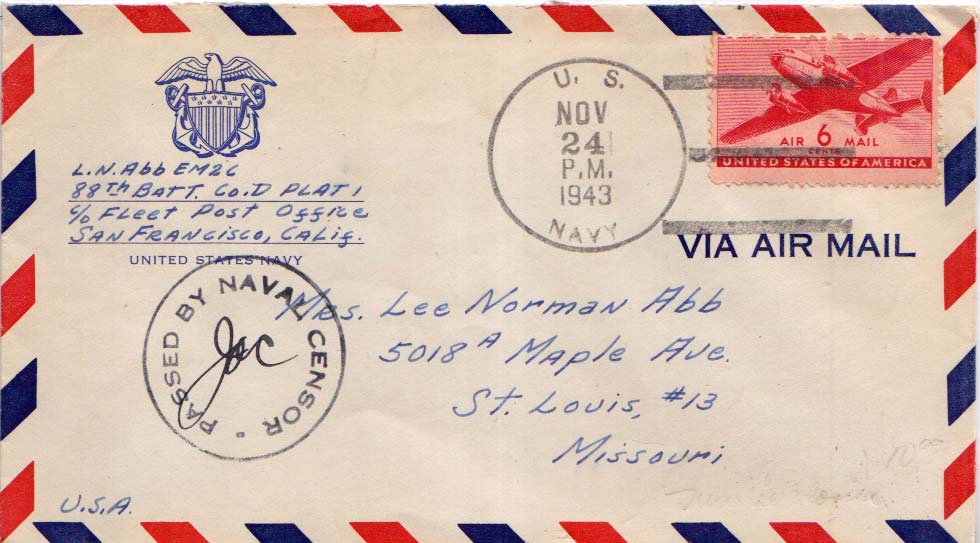 L.N. Abb EM2C
88TH BATT. CO. D PLAT 1
c/o Fleet Post Office
San Francisco, Calif.
UNITED STATES NAVY
U. S.
NOV
24
P.M.
1943
NAVY
AIR 6 MAIL
CENTS
UNITED STATES OF AMERICA
VIA AIR MAIL
PASSED BY NAVAL CENSOR
Mrs. Lee Norman Abb
5018 A Maple Ave.
St. Louis, #13
Missouri
U.S.A.
10.00